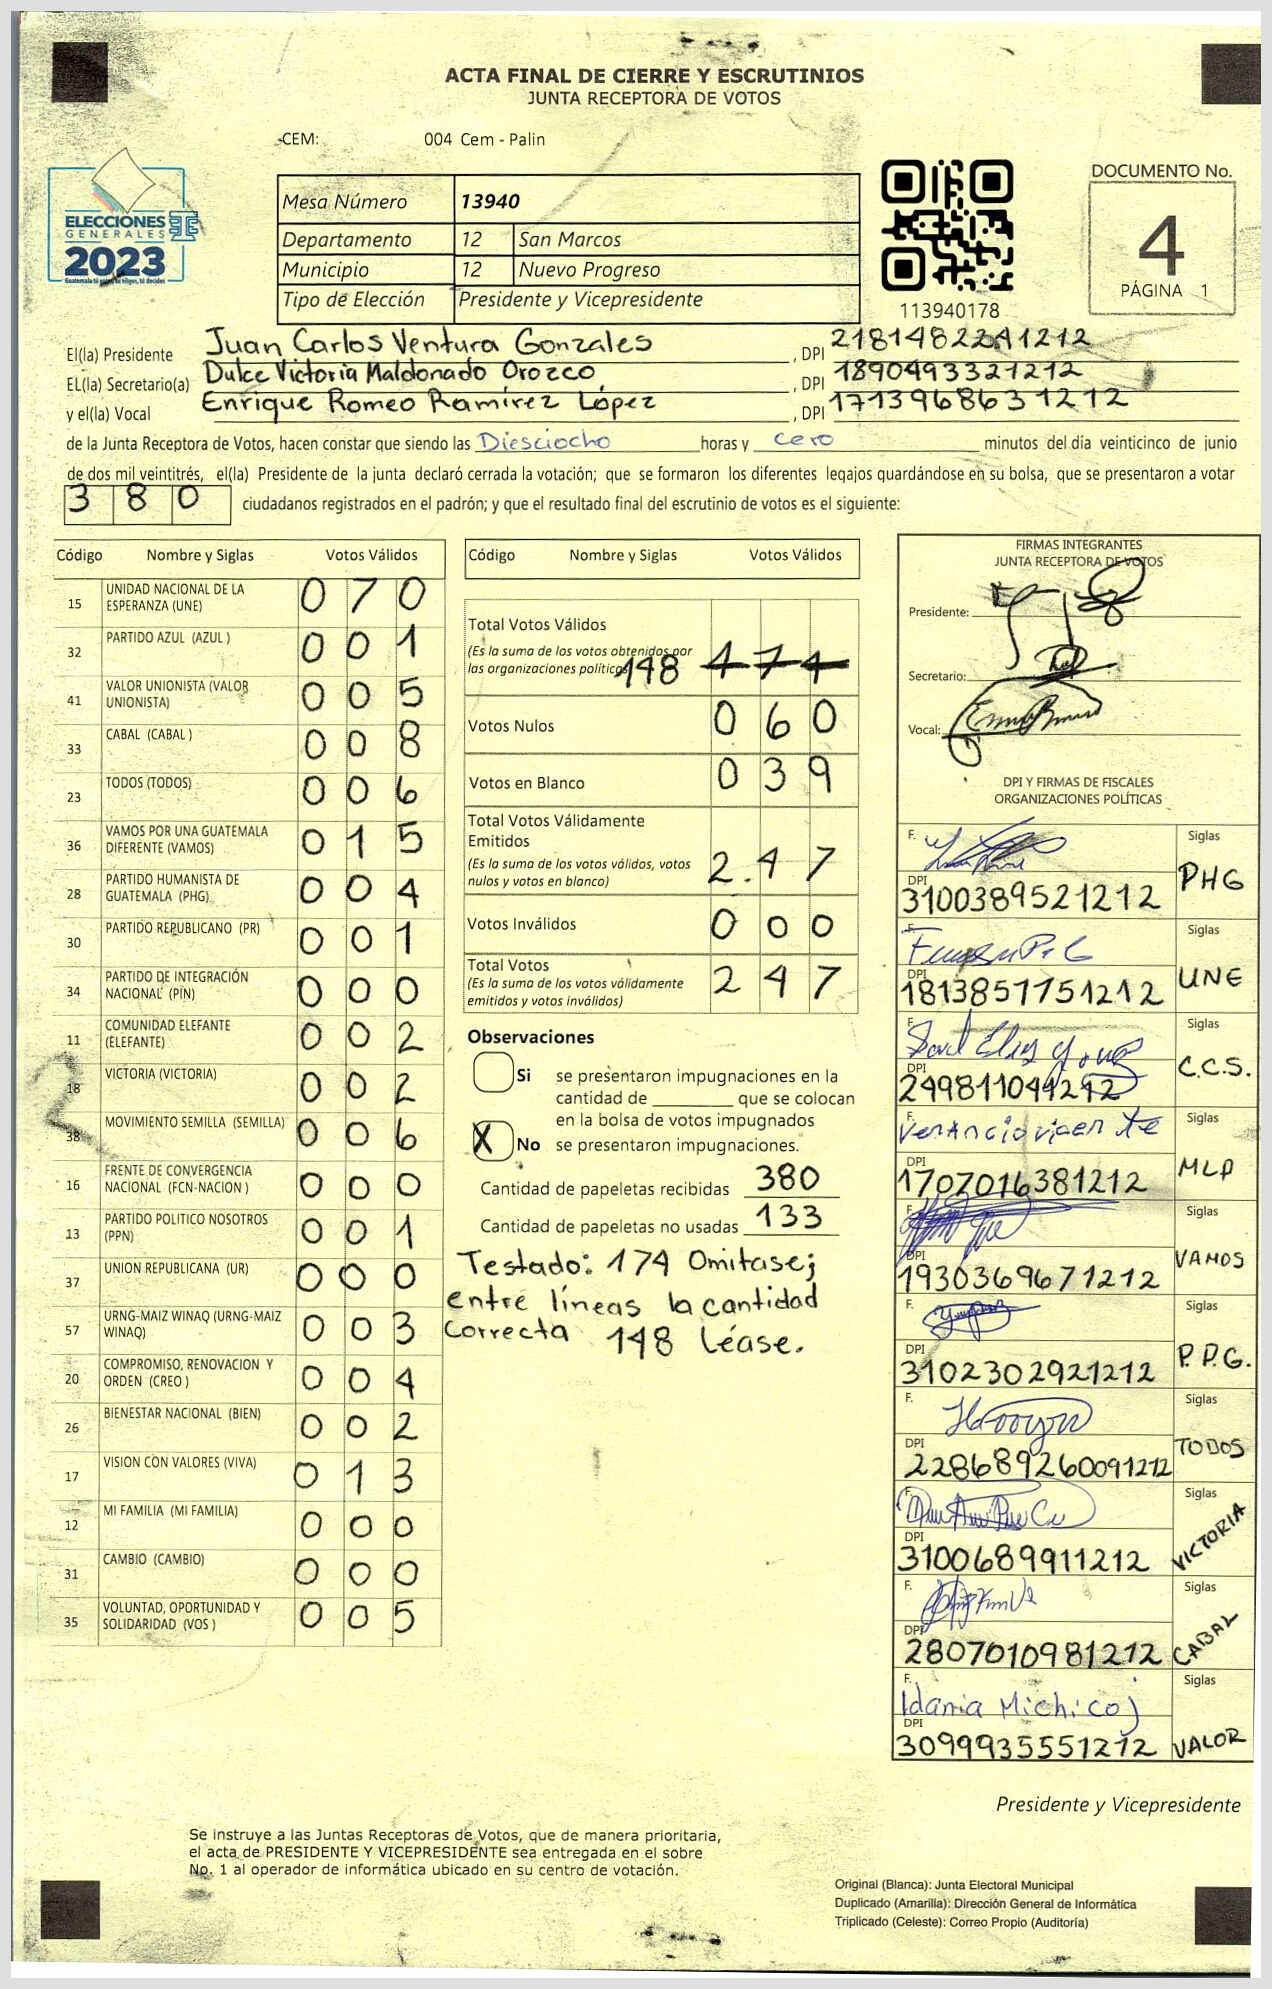 ACTA FINAL DE CIERRE Y ESCRUTINIOS
JUNTA RECEPTORA DE VOTOS
CEM: 004 Cem - Palin
ELECCIONES
GENERALES
2023
Guatemala tú eres, tú eliges, tú decides
Mesa Número 13940
Departamento 12 San Marcos
Municipio 12 Nuevo Progreso
Tipo de Elección Presidente y Vicepresidente
113940178
DOCUMENTO No.
4
PÁGINA 1
El(la) Presidente Juan Carlos Ventura Gonzales , DPI 2181482241212
EL(la) Secretario(a) Dulce Victoria Maldonado Orozco , DPI 1890493321212
y el(la) Vocal Enrique Romeo Ramírez López , DPI 1713968631212
de la Junta Receptora de Votos, hacen constar que siendo las Diesciocho horas y cero minutos del día veinticinco de junio
de dos mil veintitrés, el(la) Presidente de la junta declaró cerrada la votación; que se formaron los diferentes legajos quardándose en su bolsa, que se presentaron a votar
380 ciudadanos registrados en el padrón; y que el resultado final del escrutinio de votos es el siguiente:
Código Nombre y Siglas Votos Válidos
15 UNIDAD NACIONAL DE LA ESPERANZA (UNE) 0 7 0
32 PARTIDO AZUL (AZUL ) 0 0 1
41 VALOR UNIONISTA (VALOR UNIONISTA) 0 0 5
33 CABAL (CABAL ) 0 0 8
23 TODOS (TODOS) 0 0 6
36 VAMOS POR UNA GUATEMALA DIFERENTE (VAMOS) 0 1 5
28 PARTIDO HUMANISTA DE GUATEMALA (PHG) 0 0 4
30 PARTIDO REPUBLICANO (PR) 0 0 1
34 PARTIDO DE INTEGRACIÓN NACIONAL (PIN) 0 0 0
11 COMUNIDAD ELEFANTE (ELEFANTE) 0 0 2
18 VICTORIA (VICTORIA) 0 0 2
38 MOVIMIENTO SEMILLA (SEMILLA) 0 0 6
16 FRENTE DE CONVERGENCIA NACIONAL (FCN-NACION ) 0 0 0
13 PARTIDO POLITICO NOSOTROS (PPN) 0 0 1
37 UNION REPUBLICANA (UR) 0 0 0
57 URNG-MAIZ WINAQ (URNG-MAIZ WINAQ) 0 0 3
20 COMPROMISO, RENOVACION Y ORDEN (CREO ) 0 0 4
26 BIENESTAR NACIONAL (BIEN) 0 0 2
17 VISION CON VALORES (VIVA) 0 1 3
12 MI FAMILIA (MI FAMILIA) 0 0 0
31 CAMBIO (CAMBIO) 0 0 0
35 VOLUNTAD, OPORTUNIDAD Y SOLIDARIDAD (VOS ) 0 0 5
Código Nombre y Siglas Votos Válidos
Total Votos Válidos
(Es la suma de los votos obtenidos por
las organizaciones políticas) 148 174
Votos Nulos 0 6 0
Votos en Blanco 0 3 9
Total Votos Válidamente
Emitidos
(Es la suma de los votos válidos, votos
nulos y votos en blanco) 2.47
Votos Inválidos 0 0 0
Total Votos
(Es la suma de los votos válidamente
emitidos y votos inválidos) 2 4 7
Observaciones
Si se presentaron impugnaciones en la
cantidad de ________ que se colocan
en la bolsa de votos impugnados
X No se presentaron impugnaciones.
Cantidad de papeletas recibidas 380
Cantidad de papeletas no usadas 133
Testado: 174 Omitase;
entre líneas la cantidad
correcta 148 Léase.
FIRMAS INTEGRANTES
JUNTA RECEPTORA DE VOTOS
Presidente:
Secretario:
Vocal:
DPI Y FIRMAS DE FISCALES
ORGANIZACIONES POLÍTICAS
F. Siglas
DPI 3100389521212 PHG
F. Siglas
DPI 1813851751212 UNE
F. Siglas
DPI 2498110441212 C.C.S.
F. Venancio vicente Siglas
DPI 1707016381212 MLP
F. Siglas
DPI 1930369671212 VAMOS
F. Siglas
DPI 3102302921212 P.P.G.
F. Siglas
DPI 228689260091212 TODOS
F. Siglas
DPI 3100689911212 VICTORIA
F. Siglas
DPI 2807010981212 CABAL
F. Idania Michicoj Siglas
DPI 3099935551212 VALOR
Presidente y Vicepresidente
Se instruye a las Juntas Receptoras de Votos, que de manera prioritaria,
el acta de PRESIDENTE Y VICEPRESIDENTE sea entregada en el sobre
No. 1 al operador de informática ubicado en su centro de votación.
Original (Blanca): Junta Electoral Municipal
Duplicado (Amarilla): Dirección General de Informática
Triplicado (Celeste): Correo Propio (Auditoría)